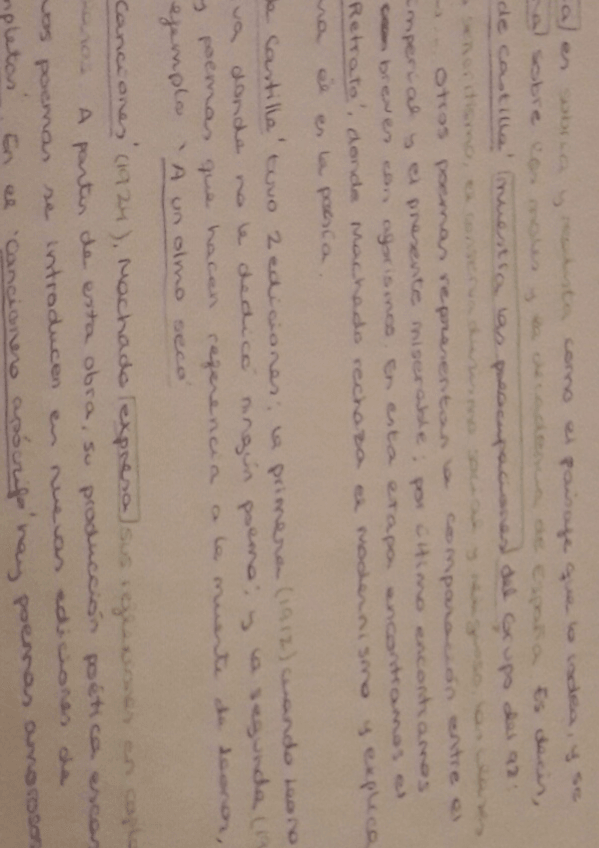 a) es sobria y como el paisaje que lo rodea, y se
na) sobre los males y la decadencia de España. Es decir,
de Castilla' muestra las preocupaciones del Grupo del 98:
señoritismo, el conservadurismo social y religioso,
Otros poemas representan la comparación entre el
imperial y el presente miserable; por último encontramos
breves con aforismos. En esta etapa encontramos el
Retrato', donde Machado rechaza el modernismo y explica
él es la poesía.
Castilla' tuvo 2 ediciones; la primera (1912) cuando
donde no le dedicó ningún poema; y la segunda (19
y poemas que hacen referencia a la muerte de Leonor,
ejemplo 'A un olmo seco'
Canciones' (1924), Machado expresa sus reflexiones en
A partir de esta obra, su producción poética
poemas se introducen en nuevas ediciones de
mpletas'. En el 'Cancionero apócrifo' hay poemas amorosos